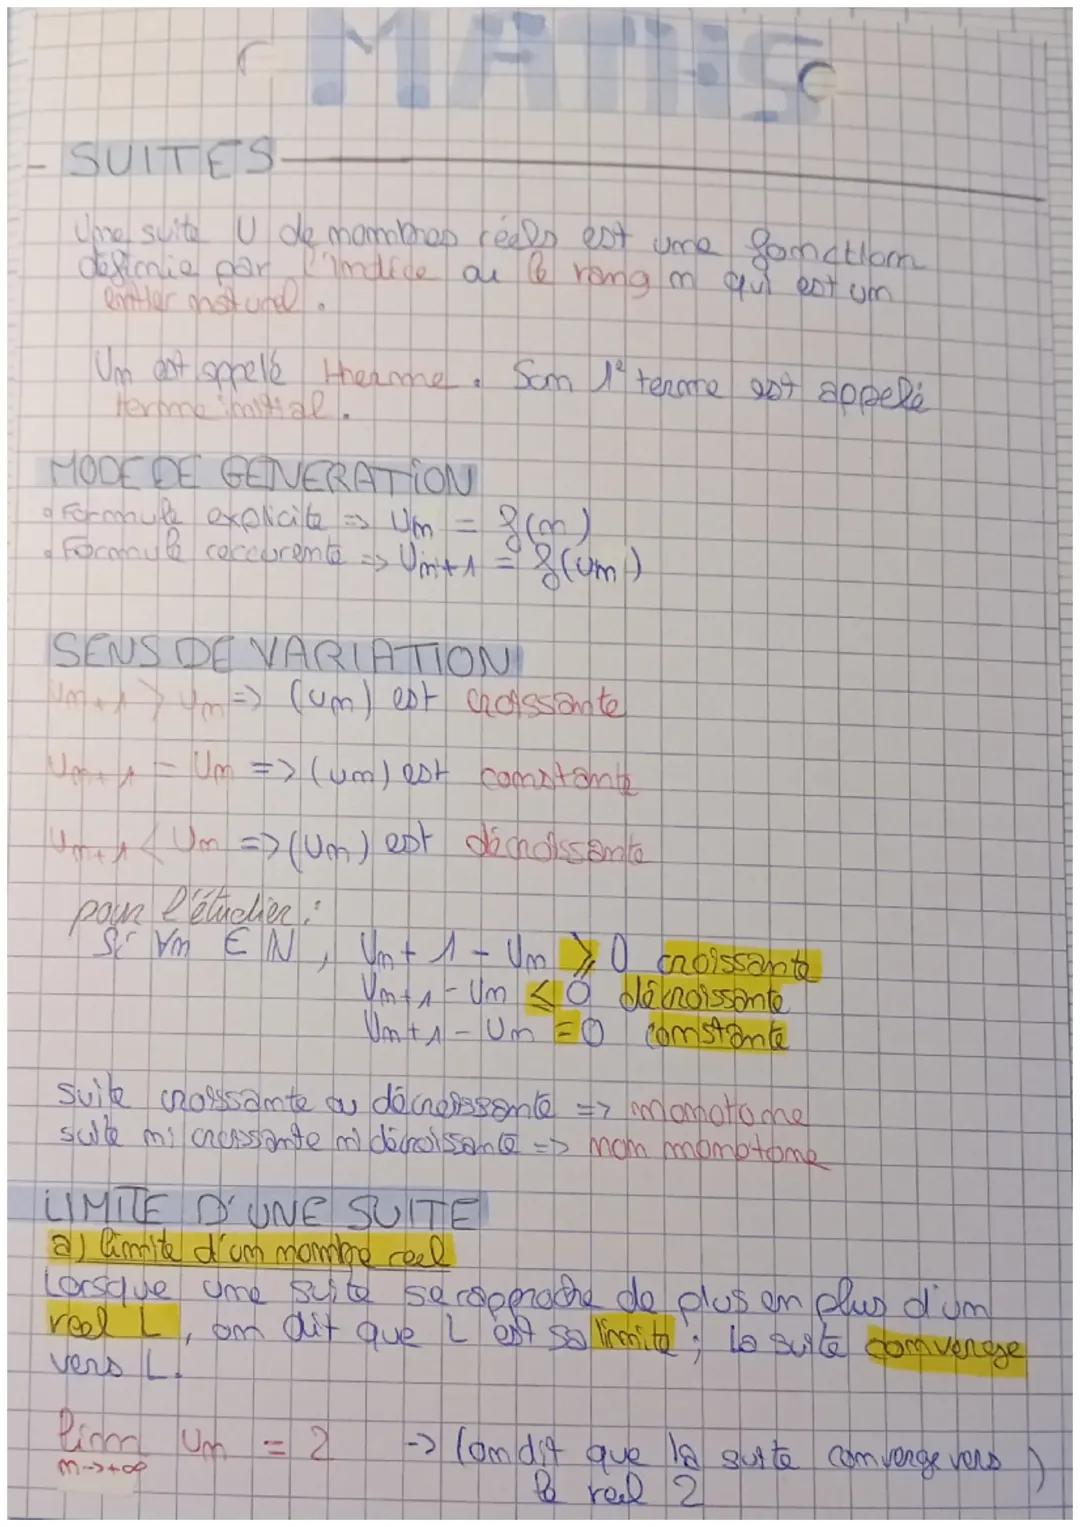 MATHS
- SUITES
Une suite U de nombres réels est une fonction
définie par l'indice ou le rang n qui est un
entier naturel.
Un est appelé therme. Son 1e terme est appelé
terme initial.
MODE DE GENERATION
• Formule explicite => Un = f(n)
• Formule reccurente => Un+1 = f(Un)
SENS DE VARIATION
Un+1 > Un => (Un) est croissante
Un+1 = Un => (Un) est constante
Un+1 < Un => (Un) est décroissante
pour l'étudier :
Si ∀n ∈ N, Un+1 - Un ⩾ 0 croissante
Un+1 - Un ⩽ 0 décroissante
Un+1 - Un = 0 constante
Suite croissante ou décroissante => monotone
suite ni croissante ni décroissante => non monotone
LIMITE D'UNE SUITE
a) limite d'un nombre reel
Lorsque une suite se rapproche de plus en plus d'un
reel L, on dit que L est sa limite ; la suite converege
vers L.
lim Un = 2 -> (on dit que la suite converge vers
n->+∞ le reel 2)